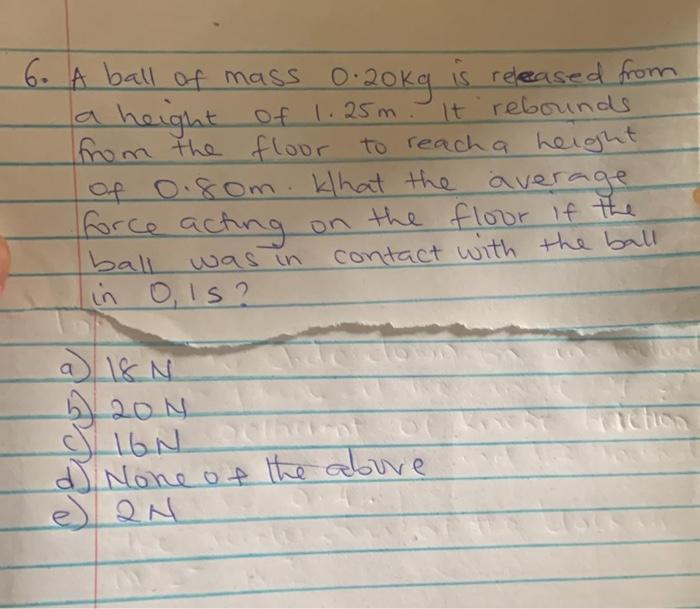 6. A ball of mass 0.20kg is released from
a height of 1.25m. It rebounds
from the floor to reach a height
of 0.80m. What the average
force acting on the floor if the
ball was in contact with the ball
in 0,1s?
a) 18N
b) 20N
c) 16N
d) None of the above
e) 2N